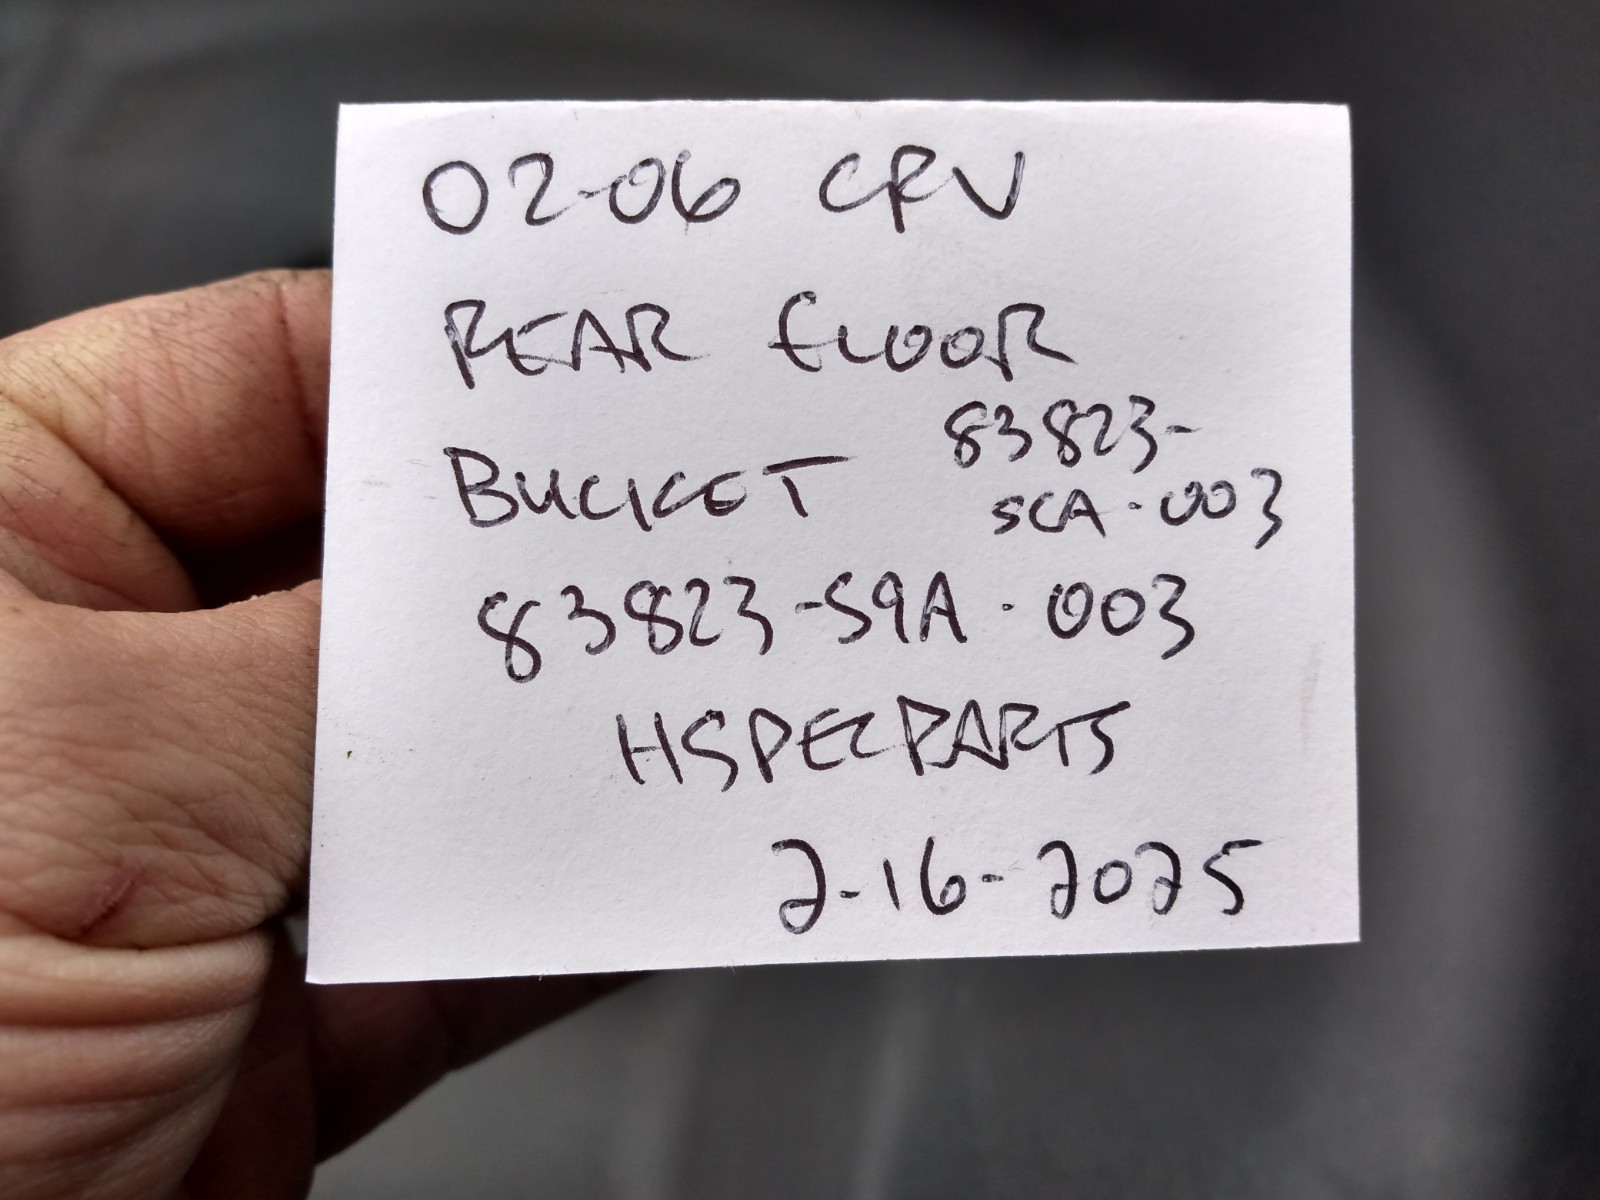 02-06 CRV
REAR FLOOR
83823-
BUCKET
SCA-003
83823-S9A-003
HSPECPARTS
2-16-2025